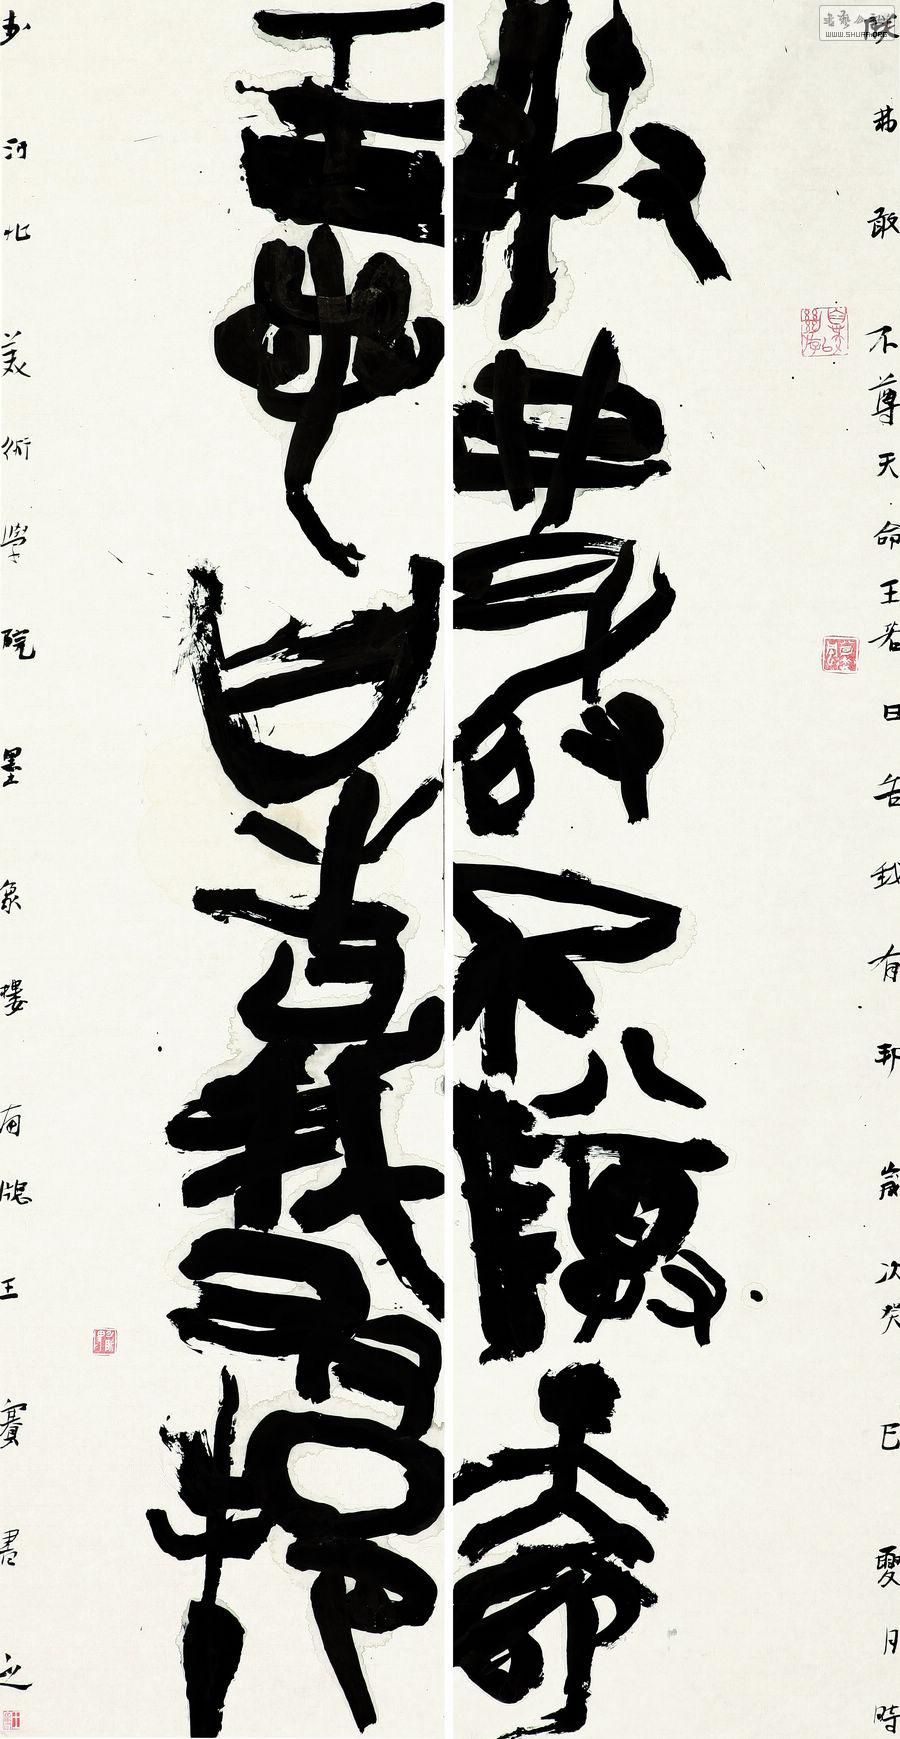 WWW.SHUFA.ORG
朕弗敢不尊天命王若曰告我有邦歲次癸巳夏月時
朕弗敢不尊天命
王若曰告我有邦
於河北美術學院墨象樓南牕王賽書之